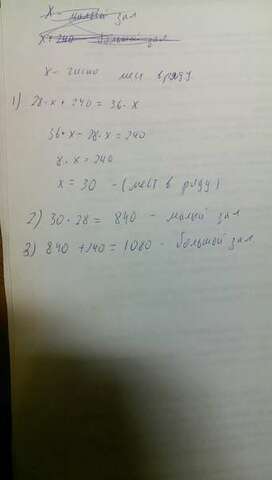 x - малый зал
x + 240 большой зал
x - число мест в ряду.
1) 28 · x + 240 = 36 · x
36 · x - 28 · x = 240
8 · x = 240
x = 30 - (мест в ряду)
2) 30 · 28 = 840 - малый зал
3) 840 + 240 = 1080 - большой зал.